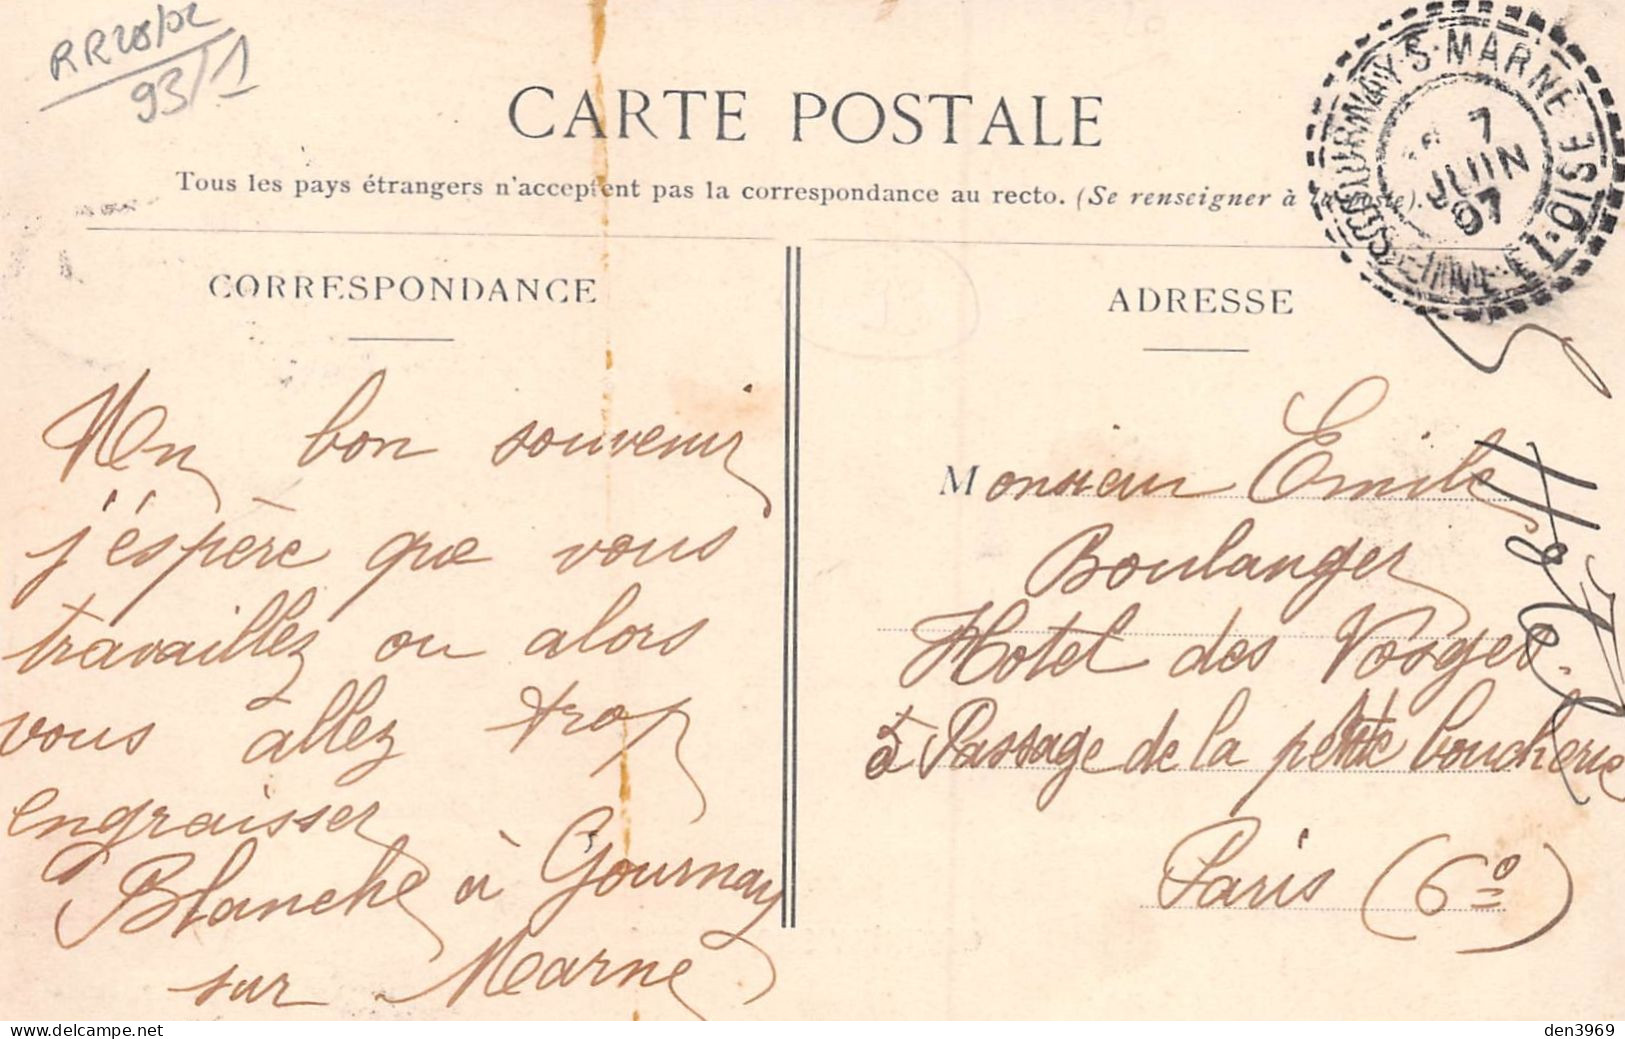 RR28/02
93/1
CARTE POSTALE
Tous les pays étrangers n'acceptent pas la correspondance au recto. (Se renseigner à la poste).
GOURNAY-S-MARNE SEINE-ET-OISE
7
JUIN
07
CORRESPONDANCE
ADRESSE
Un bon souvenir
j'éspère que vous
travaillez ou alors
vous allez trop
engraisser
Blanche à Gournay
sur Marne
Monsieur Emile
Boulanger
Hotel des Vosges
Passage de la petite boucherie
Paris (6e)
delcampe.net
den3969